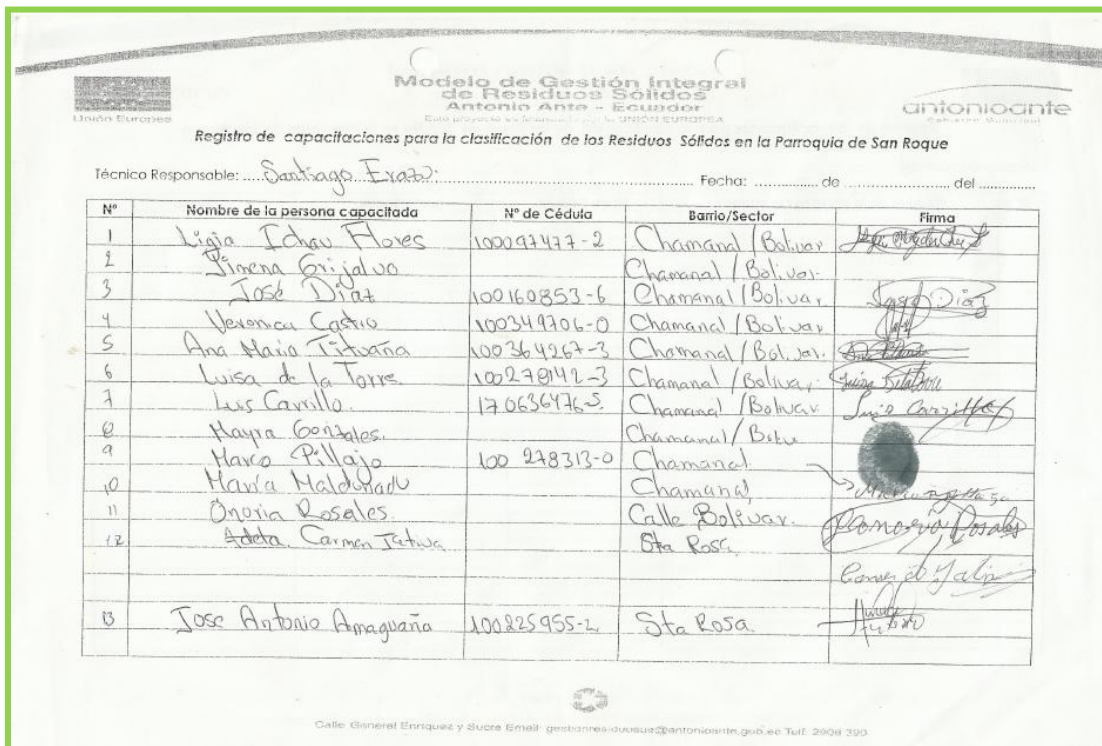 Modelo de Gestión Integral
de Residuos Sólidos
Antonio Ante - Ecuador
Unión Europea
Este proyecto es financiado por la UNIÓN EUROPEA
antonioante
Gobierno Municipal
Registro de capacitaciones para la clasificación de los Residuos Sólidos en la Parroquia de San Roque
Técnico Responsable: Santiago Erazo. Fecha: de del
Nº Nombre de la persona capacitada Nº de Cédula Barrio/Sector Firma
1 Ligia Flores 100097477-2 Chamanal / Bolivar
2 Jimena Grijalva Chamanal / Bolivar.
3 José Díaz 100160853-6 Chamanal / Bolivar, José Díaz
4 Veronica Castro 100349706-0 Chamanal / Bolivar
5 Ana Maria Tituaña 100364267-3 Chamanal / Bolivar.
6 Luisa de la Torre 100279142-3 Chamanal / Bolivar,
7 Luis Carrillo. 170636476-5. Chamanal / Bolivar Luis Carrillo
8 Mayra Gonzales. Chamanal / Boliv
9 Marco Pillajo 100 278313-0 Chamanal
10 María Maldonado Chamanal,
11 Onoria Rosales Calle Bolívar. Rosales
12 Carmen Jativa Sta Rosa
13 Jose Antonio Amaguaña 100225955-2 Sta Rosa.
Calle General Enriquez y Sucre Email: Telf: 2906 390